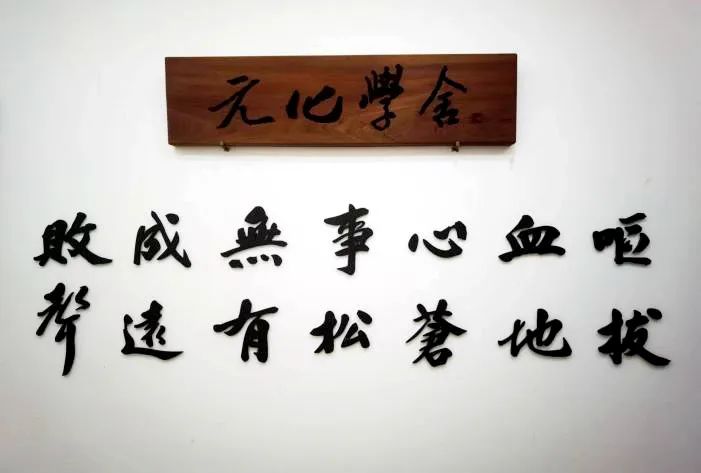 元化學舍
嘔血心事無成敗
拔地蒼松有遠聲